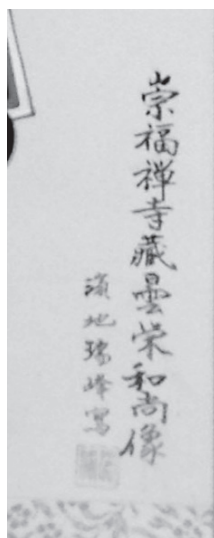 崇福禅寺藏曇栄和尚像
濱地瑞峰寫